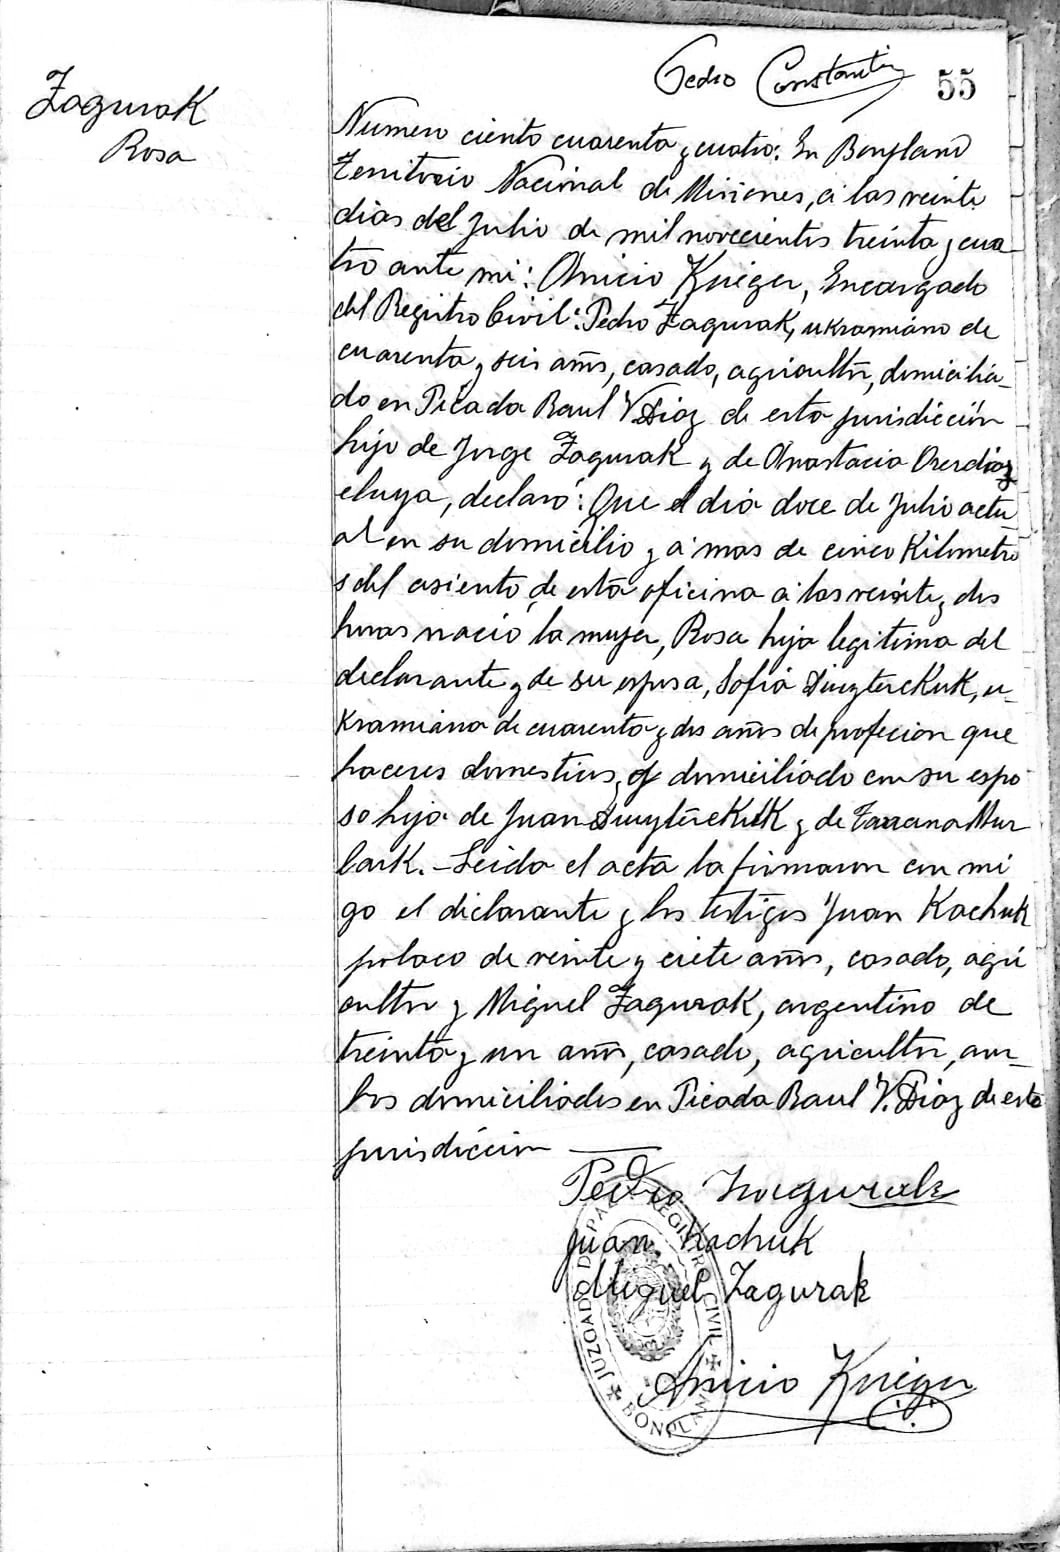 Pedro Constantin 55
Zagurak
Rosa
Numero ciento cuarenta y cuatro: En Bonpland
Territorio Nacional de Misiones, a los veinte
dias del Julio de mil novecientos treinta y cua
tro ante mi: Anicio Krieger, Encargado
del Registro Civil: Pedro Zagurak, ukraniano de
cuarenta y seis años, casado, agricultor, domicilia-
do en Picada Raul V. Diaz de esta jurisdicción
hijo de Jorge Zagurak y de Anastacia
declaró: Que el dia doce de Julio actu
al en su domicilio y a mas de cinco Kilometro
s del asiento de esta oficina a las veinte y dos
horas nació la mujer, Rosa hija legitima del
declarante y de su esposa, Sofia u-
kraniana de cuarenta y dos años de profecion que
haceres domesticos, domiciliado con su espo
so hija de Juan y de
Leida el acta la firmaron con mi
go el diclarante y los testigos Juan Kachuk
polaco de veinte y ciete años, casado, agri
cultor y Miguel Zagurak, argentino de
treinta y un años, casado, agricultor, am-
bos domiciliados en Picada Raul V. Diaz de esta
jurisdicción
Pedro Zagurak
Juan Kachuk
Miguel Zagurak
Anicio Krieger
JUZGADO DE PAZ Y REGISTRO CIVIL
BONPLAND